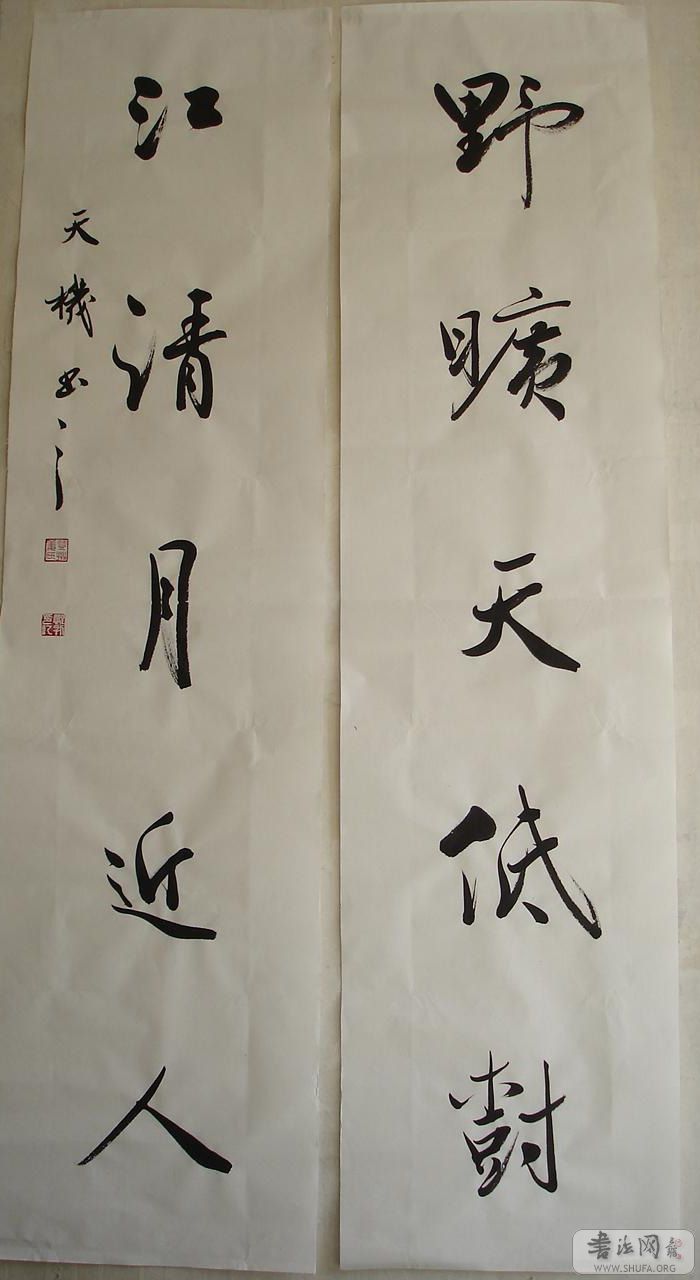 野曠天低樹
江清月近人
天機书
书法网
WWW.SHUFA.ORG